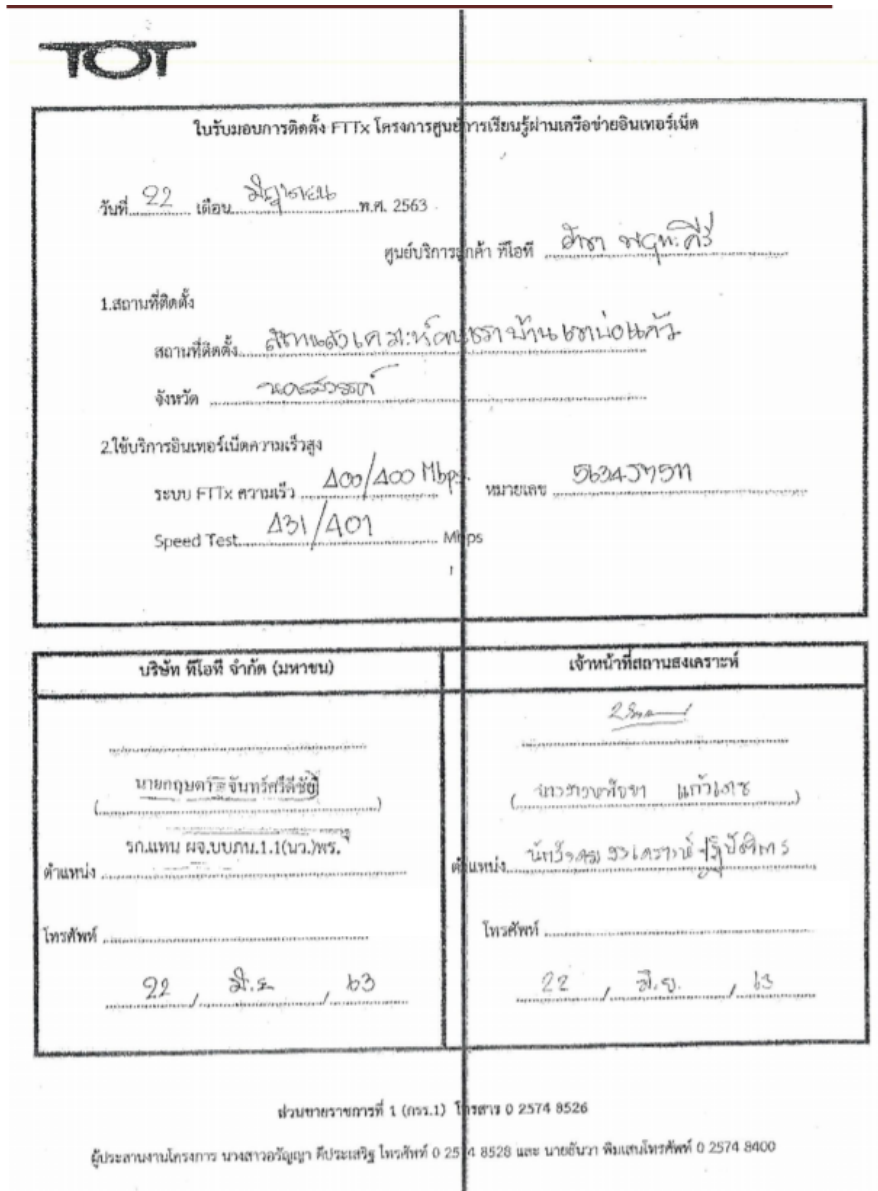 TOT
ใบรับมอบการติดตั้ง FTTx โครงการศูนย์การเรียนรู้ผ่านเครือข่ายอินเทอร์เน็ต
วันที่ 22 เดือน มิถุนายน พ.ศ. 2563
ศูนย์บริการลูกค้า ทีโอที สาขา
1.สถานที่ติดตั้ง
สถานที่ติดตั้ง สถานสงเคราะห์คนชราบ้านเขาบ่อแก้ว
จังหวัด นครสวรรค์
2.ใช้บริการอินเทอร์เน็ตความเร็วสูง
ระบบ FTTx ความเร็ว 400/400 Mbps. หมายเลข
Speed Test 431/401 Mbps
บริษัท ทีโอที จำกัด (มหาชน)
เจ้าหน้าที่สถานสงเคราะห์
( )
รก.แทน ผจ.บบภน.1.1(นว.)พร.
ตำแหน่ง
โทรศัพท์
22 / มิ.ย / 63
( นางสาว แก้วเดช )
ตำแหน่ง นักสังคมสงเคราะห์ปฏิบัติการ
โทรศัพท์
22 / มิ.ย. / 63
ส่วนขายราชการที่ 1 (กรร.1) โทรสาร 0 2574 8526
ผู้ประสานงานโครงการ นางสาวอรัญญา ดีประเสริฐ โทรศัพท์ 0 2574 8528 และ นายธันวา พิมเสนโทรศัพท์ 0 2574 8400